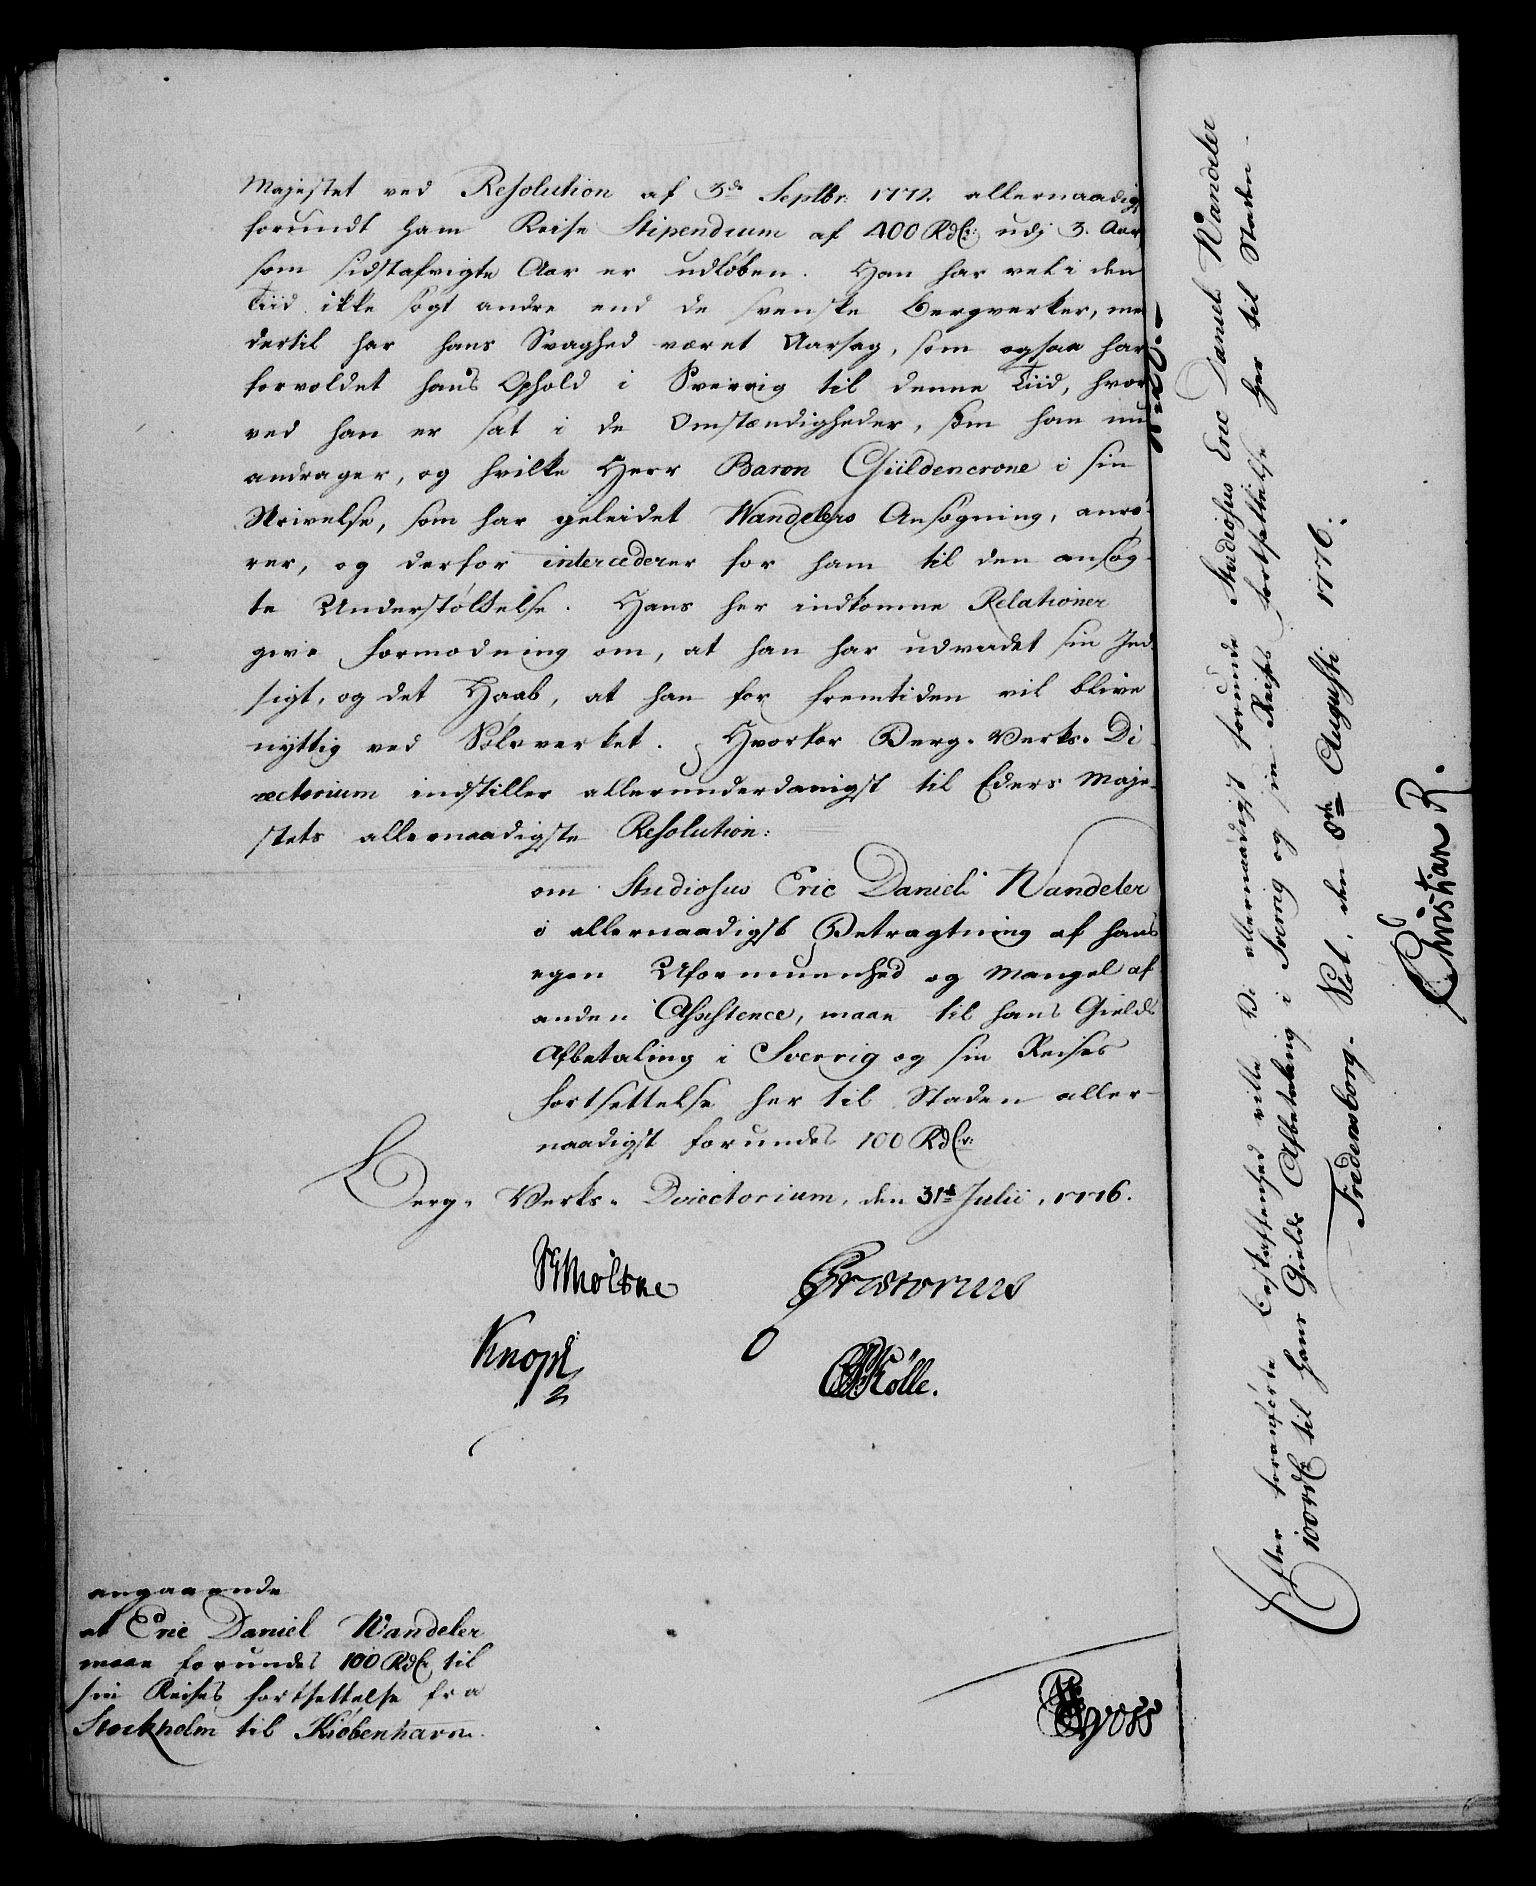 Majestet ved Resolution af 3de Septbr: 1772 allernaadigst
forundt ham Reise Stipendium af 400 Rdlr: udj 3. Aar
som sidstafvigte Aar er udløben. Han har vel i den
Tiid ikke søgt andre end de svenske Bergverker, men
dertil har hans Svaghed været Aarsag, som ogsaa har
forvoldet hans Ophold i Sverrig til denne Tiid, hvor
ved han er sat i de Omstændigheder, som han nu
andrager, og hvilke Herr Baron Güldencrone i sin
Skrivelse, som har geleidet Wandelers Ansøgning, anfø-
rer, og derfor intercederer for ham til den ansøg-
te Understøttelse. Hans her indkomne Relationer
give Formodning om, at han har udvidet sin Ind
sigt, og det Haab, at han for Fremtiden vil blive
nyttig ved Sølvverket. Hvorfor Berg-Verks-Di-
rectorium indstiller allerunderdanigst til Eders Maje-
stets allernaadigste Resolution:
om Studiosus Eric Daniel Wandeler
i allernaadigst Betragtning af hans
egen Uformuenhed og Mangel af
anden Assistence, maae til hans Gields
Afbetaling i Sverrig og sin Reises
Fortsettelse her til Staden aller-
naadigst forundes 100 Rdlr:
Berg-Verks-Directorium, den 31te Julii, 1776.
Moltke Prætorius
Knoph
Kølle.
angaaende
at Eric Daniel Wandeler
maae forundes 100 Rdlr til
sin Reises Fortsettelse fra
Stockholm til Kiøbenhavn.
Efter foranførte Beskaffenhed ville Vi allernaadigst forunde Studiosus Eric Daniel Wandeler
100 rdlr til hans Gields Afbetaling i Sverrig og sin Reises Fortsettelse her til Staden.
Fredensborg-Slot, den 8de Augusti 1776.
Christian R.